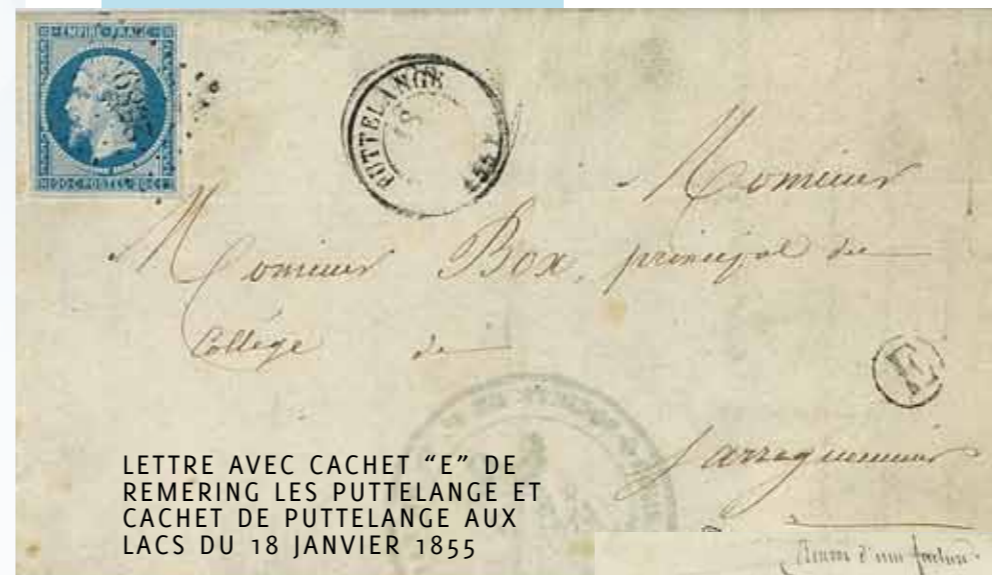 EMPIRE FRANC
20 C POSTES 20 C
PUTTELANGE
18
55
Monsieur
Monsieur Box, principal du
Collège de
E
Sarreguemines
LETTRE AVEC CACHET “E” DE
REMERING LES PUTTELANGE ET
CACHET DE PUTTELANGE AUX
LACS DU 18 JANVIER 1855
d'une facture.